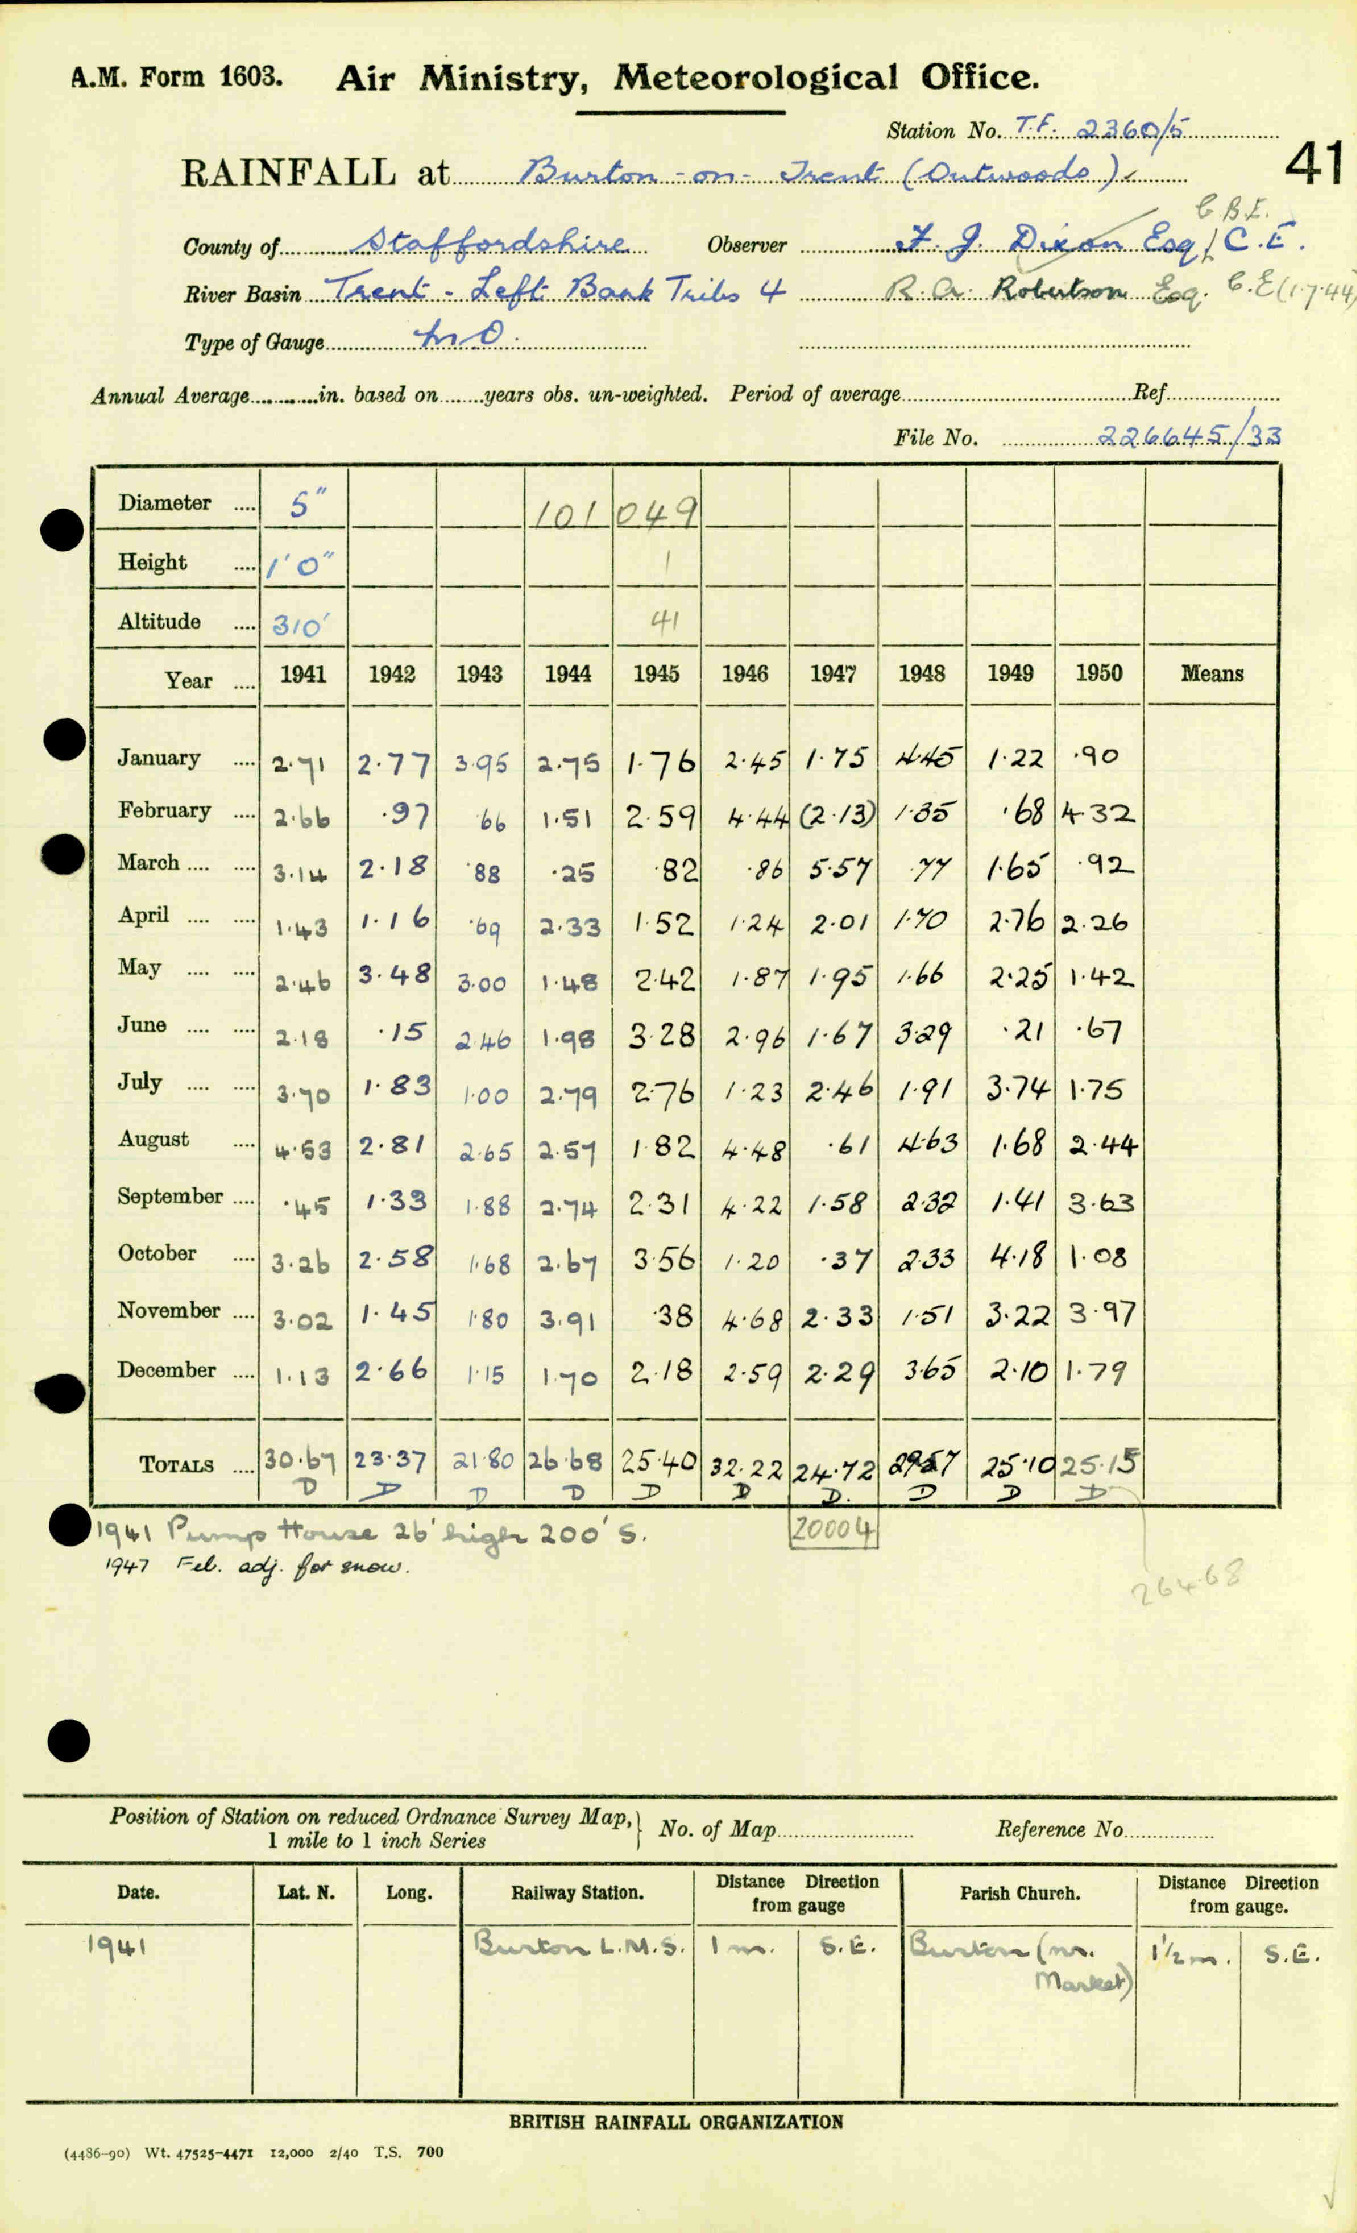 A.M. Form 1603. Air Ministry, Meteorological Office.
Station No. T.F. 2360/5
41
RAINFALL at Burton-on-Trent (Outwoods)
C.B.E.
County of Staffordshire Observer F. J. Dixon Esq, C.E.
River Basin Trent - Left Bank Tribs 4 R.A. Robertson Esq. C.E (1.7.44)
Type of Gauge M.O.
Annual Average in. based on years obs. un-weighted. Period of average Ref.
File No. 226645/33
Diameter .... 5" 101 049
Height .... 1'0" 1
Altitude .... 310' 41
Year .... 1941 1942 1943 1944 1945 1946 1947 1948 1949 1950 Means
January .... 2.71 2.77 3.95 2.75 1.76 2.45 1.75 4.45 1.22 .90
February .... 2.66 .97 .66 1.51 2.59 4.44 (2.13) 1.35 .68 4.32
March .... .... 3.14 2.18 .88 .25 .82 .86 5.57 .77 1.65 .92
April .... .... 1.43 1.16 .69 2.33 1.52 1.24 2.01 1.70 2.76 2.26
May .... .... 2.46 3.48 3.00 1.48 2.42 1.87 1.95 1.66 2.25 1.42
June .... .... 2.18 .15 2.46 1.98 3.28 2.96 1.67 3.29 .21 .67
July .... .... 3.70 1.83 1.00 2.79 2.76 1.23 2.46 1.91 3.74 1.75
August .... 4.53 2.81 2.65 2.57 1.82 4.48 .61 4.63 1.68 2.44
September .... .45 1.33 1.88 2.74 2.31 4.22 1.58 2.32 1.41 3.63
October .... 3.26 2.58 1.68 2.67 3.56 1.20 .37 2.33 4.18 1.08
November .... 3.02 1.45 1.80 3.91 .38 4.68 2.33 1.51 3.22 3.97
December .... 1.13 2.66 1.15 1.70 2.18 2.59 2.29 3.65 2.10 1.79
TOTALS .... 30.67 23.37 21.80 26.68 25.40 32.22 24.72 29.57 25.10 25.15
D D D D D D D. D D D
1941 Pump House 26' high 200' S. 20004
1947 Feb. adj. for snow.
264.68
Position of Station on reduced Ordnance Survey Map, No. of Map Reference No.
1 mile to 1 inch Series
Date. Lat. N. Long. Railway Station. Distance from gauge Direction Parish Church. Distance Direction from gauge.
1941 Burton L.M.S. 1 m. S.E. Burton (nr. Market) 1½ m. S.E.
BRITISH RAINFALL ORGANIZATION
(4486-90) Wt. 47525-4471 12,000 2/40 T.S. 700